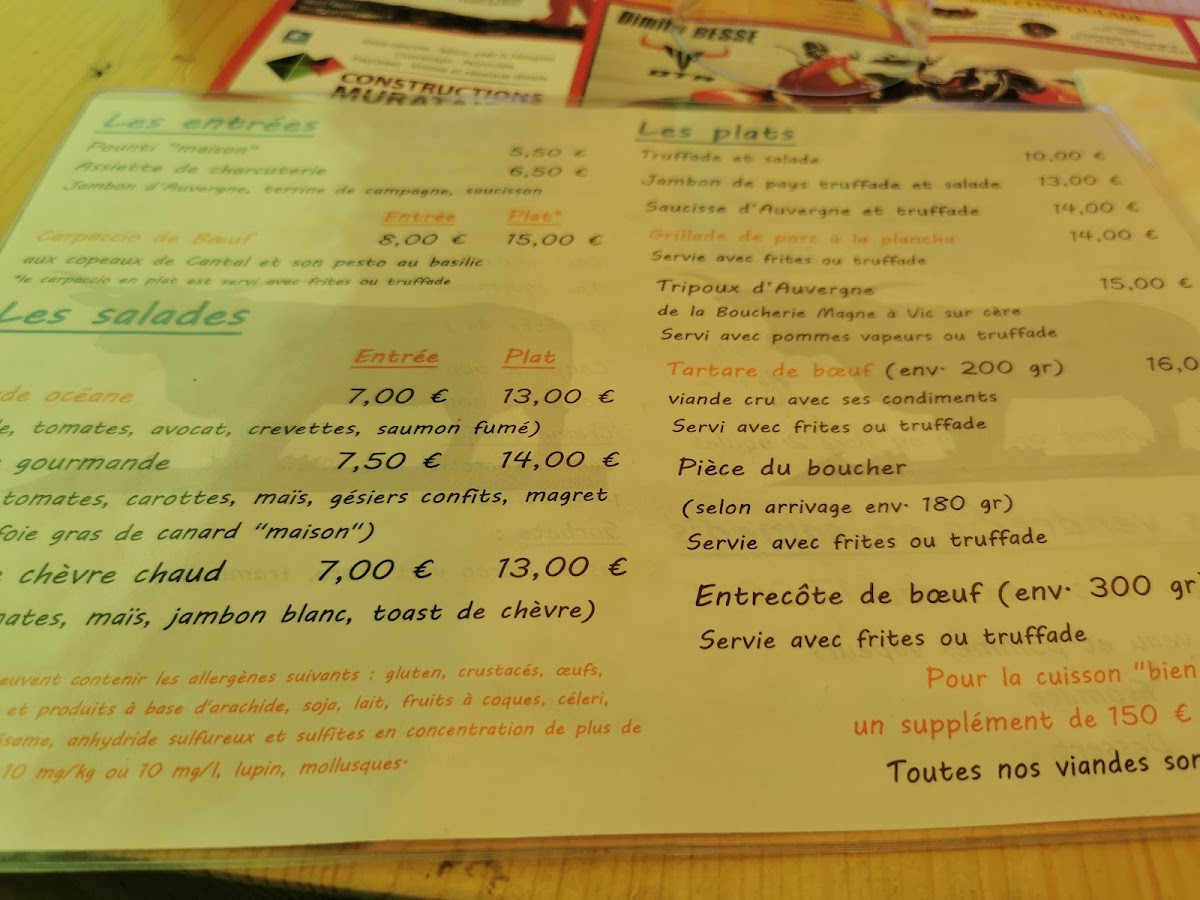 CONSTRUCTIONS
Dimitri BESSE
BTP
Les entrées
Pounti "maison" 5,50 €
Assiette de charcuterie 6,50 €
Jambon d'Auvergne, terrine de campagne, saucisson
Entrée Plat*
Carpaccio de Bœuf 8,00 € 15,00 €
aux copeaux de Cantal et son pesto au basilic
*le carpaccio en plat est servi avec frites ou truffade
Les salades
Entrée Plat
de océane 7,00 € 13,00 €
tomates, avocat, crevettes, saumon fumé)
gourmande 7,50 € 14,00 €
tomates, carottes, maïs, gésiers confits, magret
foie gras de canard "maison")
chèvre chaud 7,00 € 13,00 €
mates, maïs, jambon blanc, toast de chèvre)
euvent contenir les allergènes suivants : gluten, crustacés, œufs,
et produits à base d'arachide, soja, lait, fruits à coques, céleri,
ésame, anhydride sulfureux et sulfites en concentration de plus de
10 mg/kg ou 10 mg/l, lupin, mollusques.
Les plats
Truffade et salade 10,00 €
Jambon de pays truffade et salade 13,00 €
Saucisse d'Auvergne et truffade 14,00 €
Grillade de porc à la plancha 14,00 €
Servie avec frites ou truffade
Tripoux d'Auvergne 15,00 €
de la Boucherie Magne à Vic sur cère
Servi avec pommes vapeurs ou truffade
Tartare de bœuf (env. 200 gr) 16,0
viande cru avec ses condiments
Servi avec frites ou truffade
Pièce du boucher
(selon arrivage env. 180 gr)
Servie avec frites ou truffade
Entrecôte de bœuf (env. 300 gr)
Servie avec frites ou truffade
Pour la cuisson "bien
un supplément de 150 €
Toutes nos viandes son